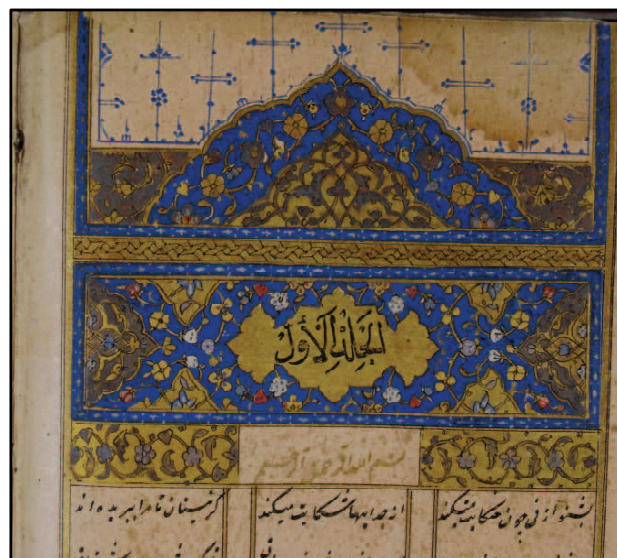 المجلد الأول
بسم الله الرحمن الرحيم
بشنو از نی چون حکایت میکند از جداییها شکایت میکند کز نیستان تا مرا ببریده اند